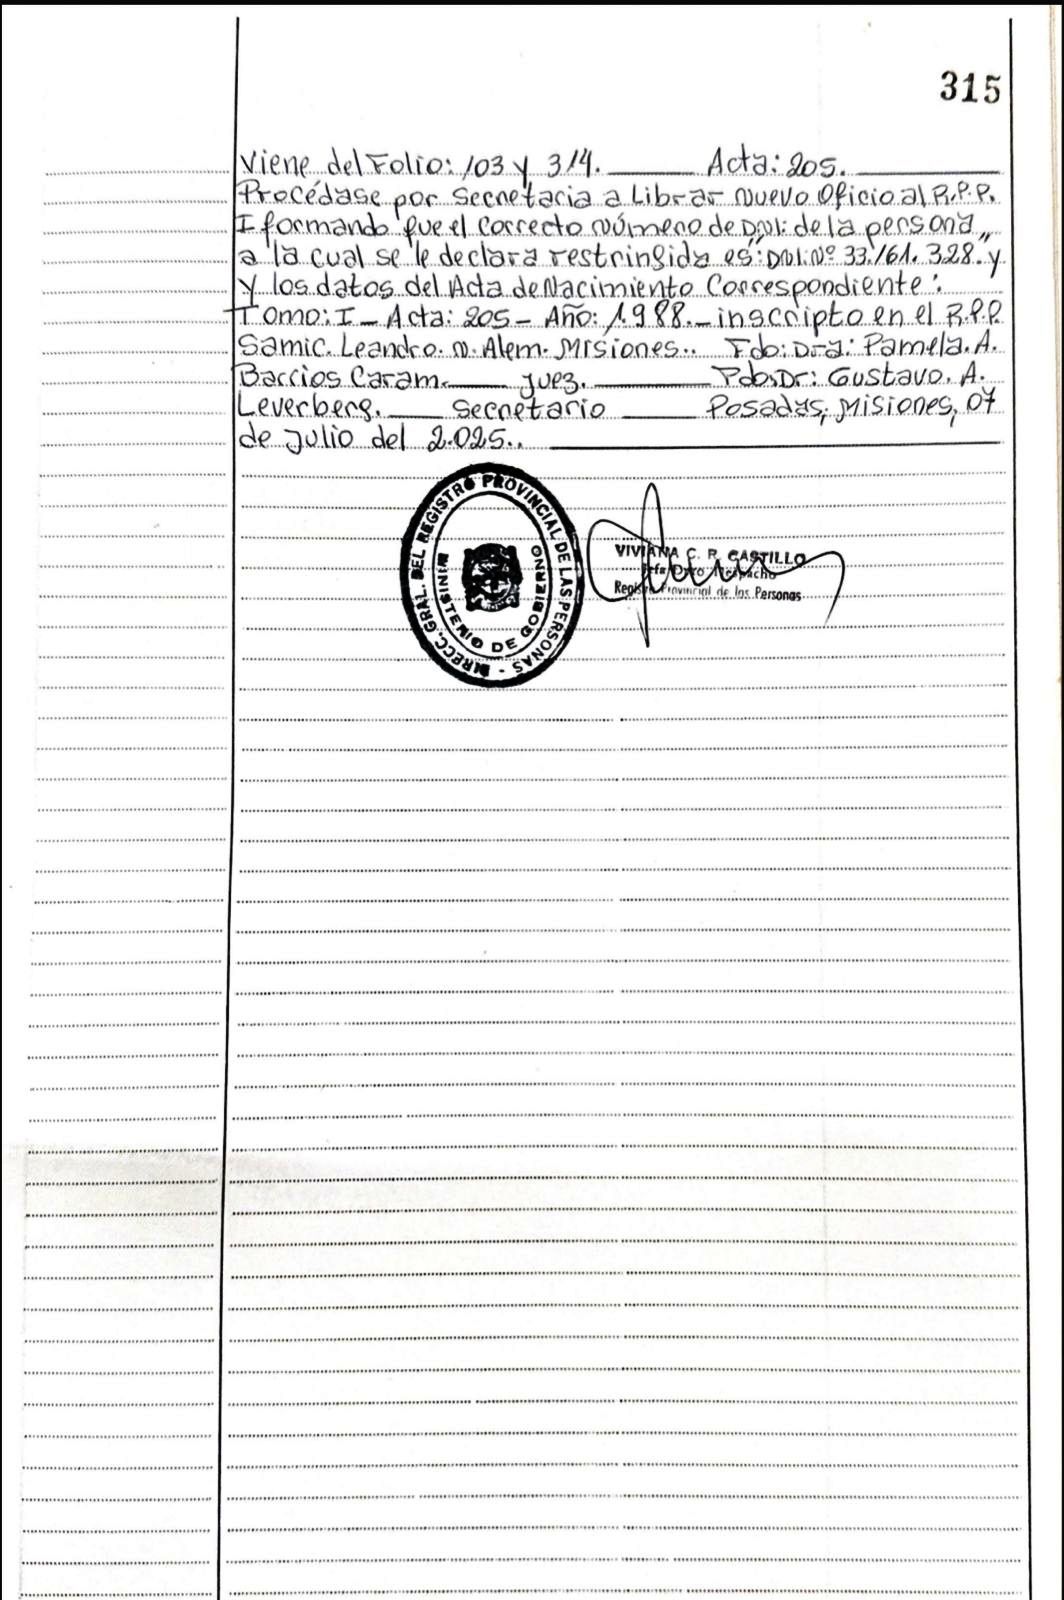 315
Viene del Folio: 103 y 314. Acta: 205.
Procédase por Secretaria a Librar nuevo Oficio al R.P.P.
Iformando que el correcto número de D.N.I: de la persona,,
a la cual se le declara restringida es: D.N.I. Nº 33.161.328. y
y los datos del Acta de Nacimiento Correspondiente:
Tomo: I - Acta: 205 - Año: 1.988. - inscripto en el R.P.P.
Samic. Leandro. N. Alem. Misiones.. Fdo: Dra: Pamela. A.
Barrios Caram. Juez. Fdo: Dr: Gustavo. A.
Leverberg. Secretario Posadas, Misiones, 07
de Julio del 2.025..
DIRECC. GRAL. DEL REGISTRO PROVINCIAL DE LAS PERSONAS -
MINISTERIO DE GOBIERNO
VIVIANA C. R. CASTILLO
Jefa Dpto
Registro Provincial de las Personas